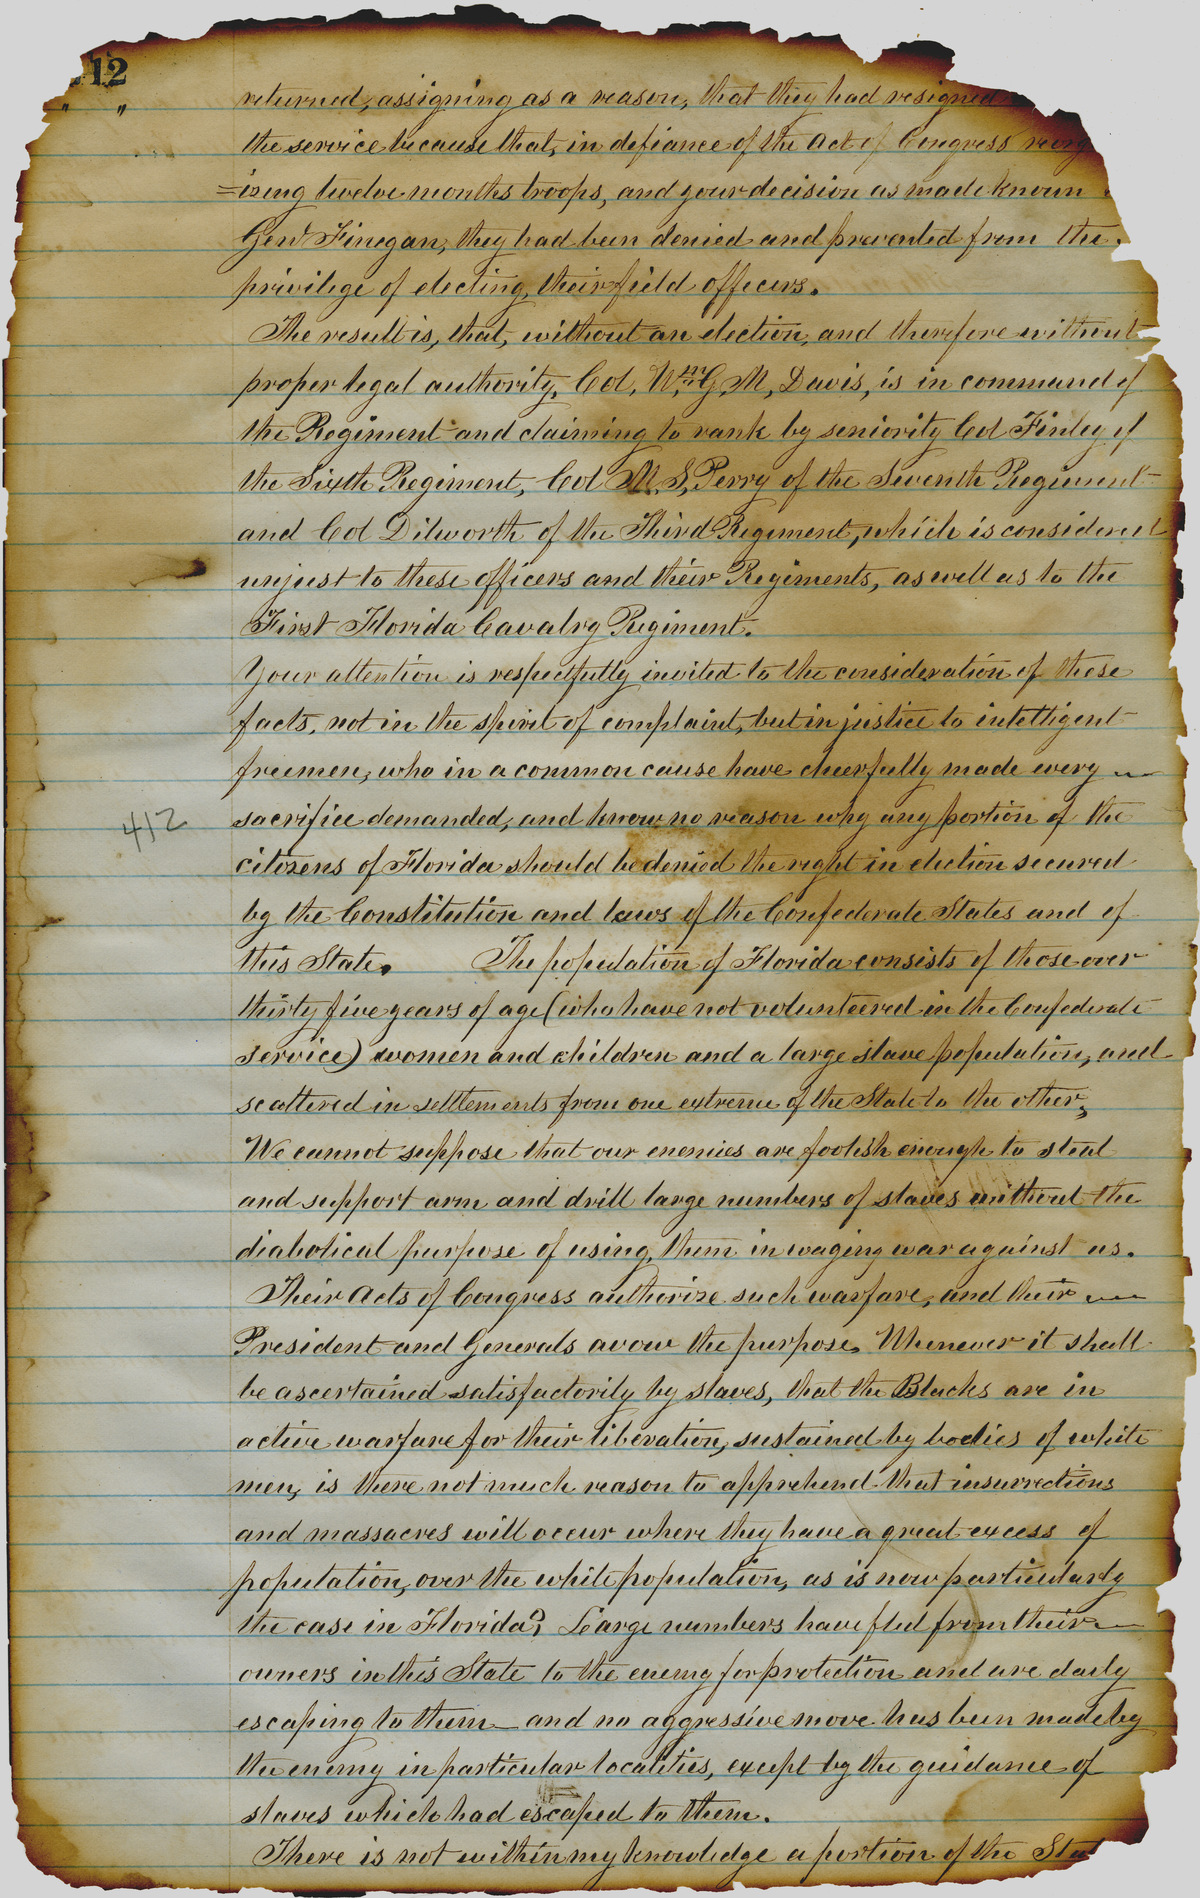 12
" "
returned, assigning as a reason, that they had resigned
the service because that, in defiance of the act of Congress reorg
=izing twelve months troops, and your decision as made known
Genl Finegan, they had been denied and prevented from the
privilege of electing their field officers.
The result is, that, without an election, and therefore without
proper legal authority, Col, Wm G, M, Davis, is in command of
the Regiment and claiming to rank by seniority Col Finley of
the Sixth Regiment, Col M. S, Perry of the Seventh Regiment
and Col Dilworth of the Third Regiment, which is considered
unjust to these officers and their Regiments, as well as to the
First Florida Cavalry Regiment.
Your attention is respectfully invited to the consideration of these
facts, not in the spirit of complaint, but in justice to intelligent
freemen, who in a common cause have cheerfully made every
412
sacrifice demanded, and know no reason why any portion of the
citizens of Florida should be denied the right in election secured
by the Constitution and laws of the Confederate States and of
this State. The population of Florida consists of those over
thirty five years of age (who have not volunteered in the Confederate
service) women and children and a large slave population, and
scattered in settlements from one extreme of the State to the other,
We cannot suppose that our enemies are foolish enough to steal
and support arm and drill large numbers of slaves without the
diabolical purpose of using them in waging war against us.
Their acts of Congress authorize such warfare, and their
President and Generals avow the purpose, Whenever it shall
be ascertained satisfactorily by slaves, that the Blacks are in
active warfare for their liberation, sustained by bodies of white
men, is there not much reason to apprehend that insurrections
and massacres will occur where they have a great excess of
population, over the white population, as is now particularly
the case in Florida? Large numbers have fled from their
owners in this State to the enemy for protection and are daily
escaping to them — and no aggressive move has been made by
the enemy in particular localities, except by the guidance of
slaves which had escaped to them.
There is not within my knowledge a portion of the Stat